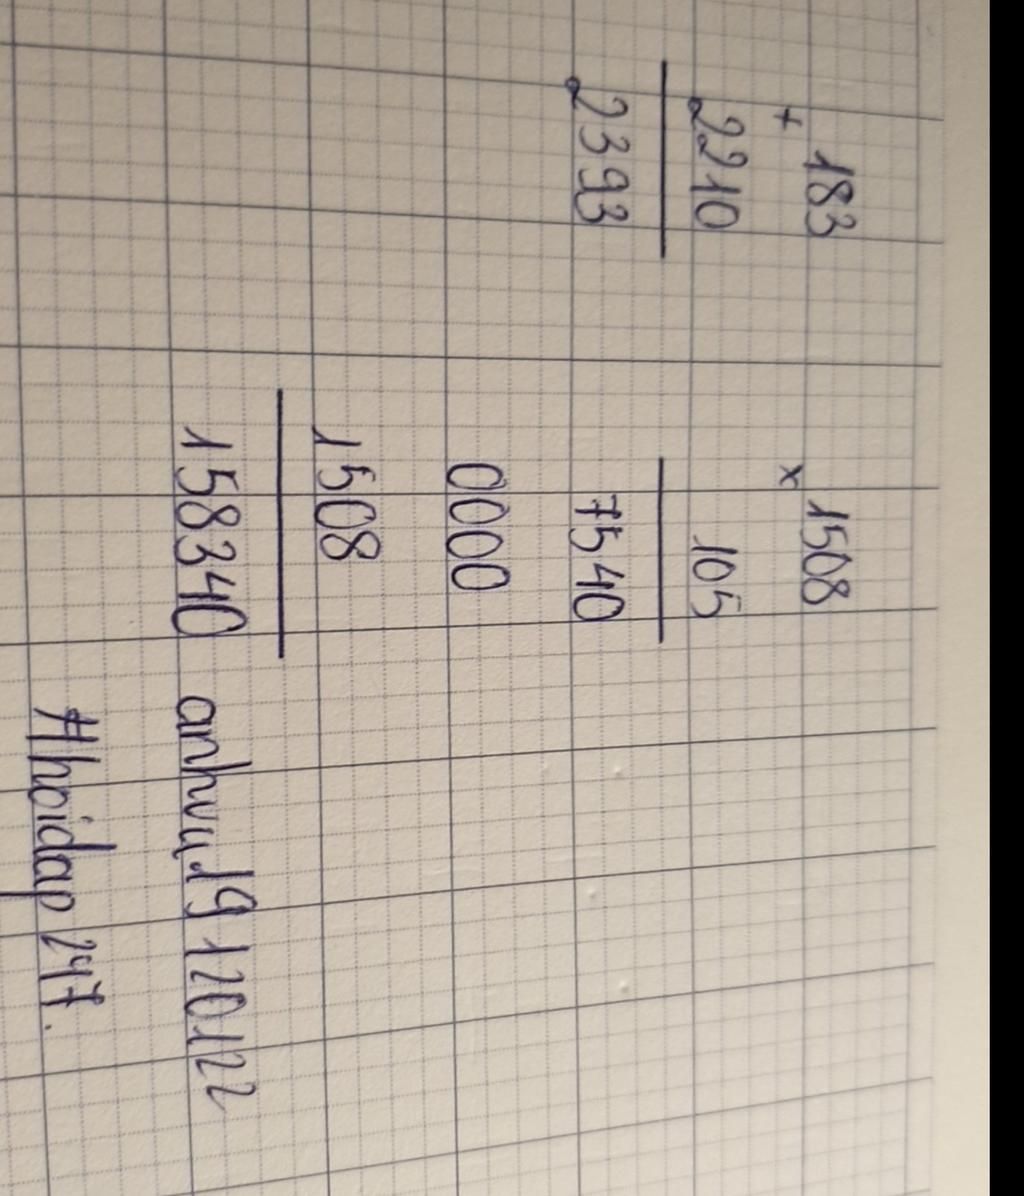 + 183
2210
2393
x 1508
105
7540
0000
1508
158340
anhvu19112012
#hoidap247.